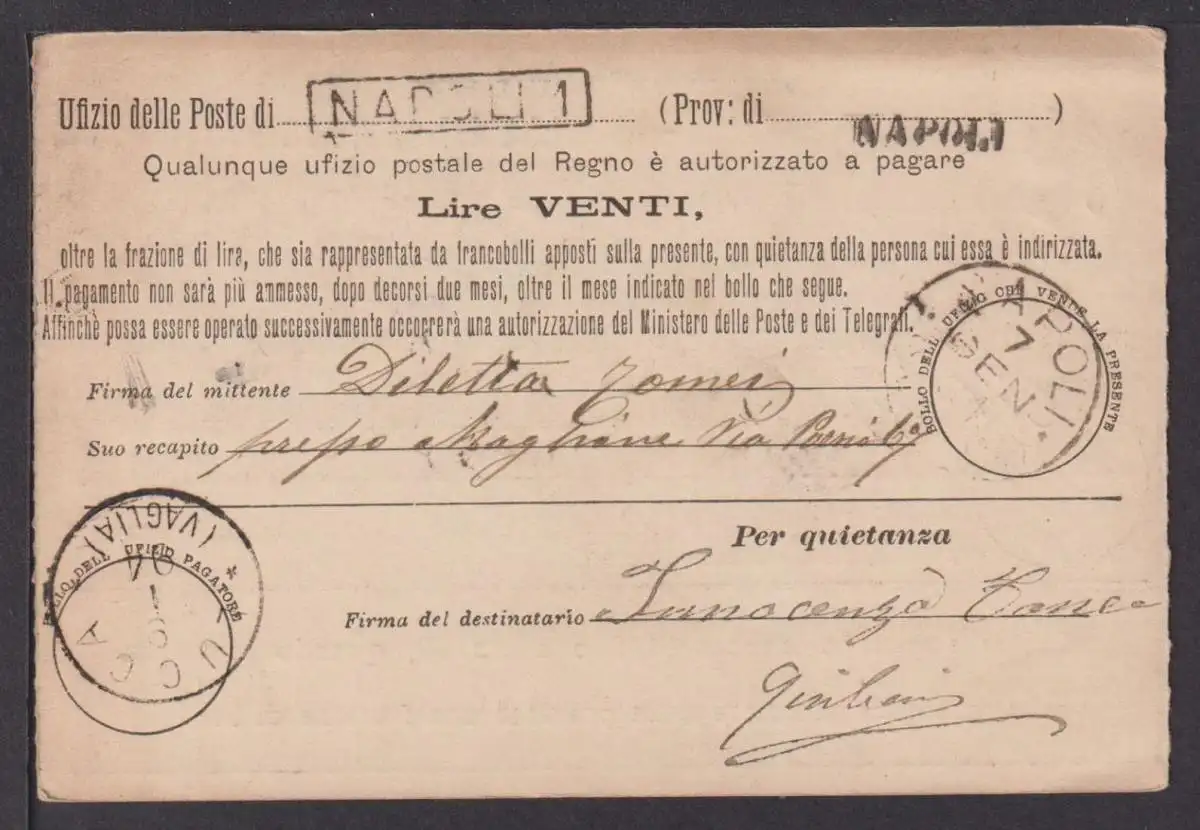 Ufizio delle Poste di NAPOLI 1 (Prov: di NAPOLI)
Qualunque ufizio postale del Regno è autorizzato a pagare
Lire VENTI,
oltre la frazione di lira, che sia rappresentata da francobolli apposti sulla presente, con quietanza della persona cui essa è indirizzata.
Il pagamento non sarà più ammesso, dopo decorsi due mesi, oltre il mese indicato nel bollo che segue.
Affinchè possa essere operato successivamente occorrerà una autorizzazione del Ministero delle Poste e dei Telegrafi.
BOLLO DELL' UFIZIO CHE VENDE LA PRESENTE
NAPOLI
7
GEN
Firma del mittente Diletta Tomei
Suo recapito Maglione Via
BOLLO DELL' UFIZIO PAGATORE
LUCCA
(VAGLIA)
04
Per quietanza
Firma del destinatario Innocenza